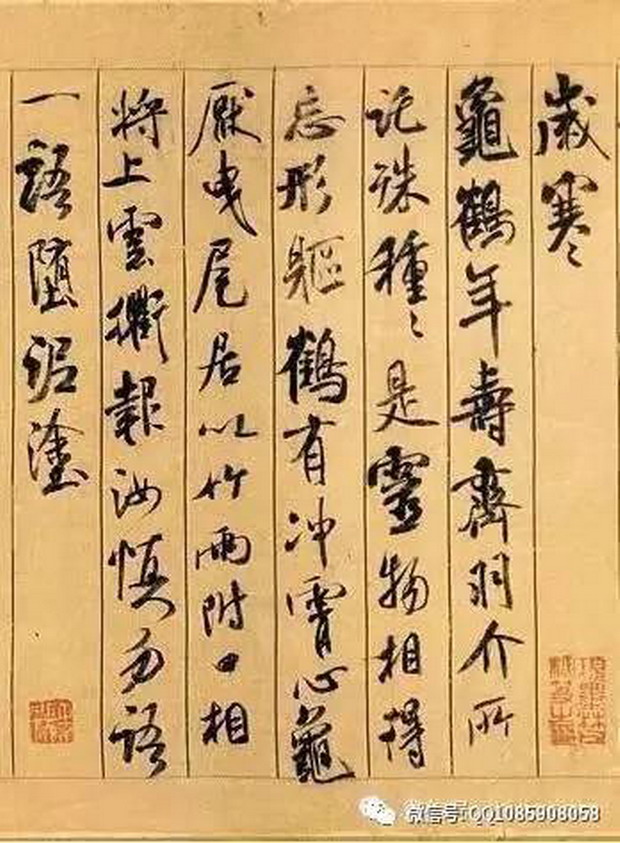 歲寒〻
龜鶴年壽齊羽介所
託殊種〻是靈物相得
忘形軀鶴有冲霄心龜
厭曳尾居以竹兩附口相
將上雲衢報汝慎勿語
一語墮泥塗
微信号:QQ1085908058